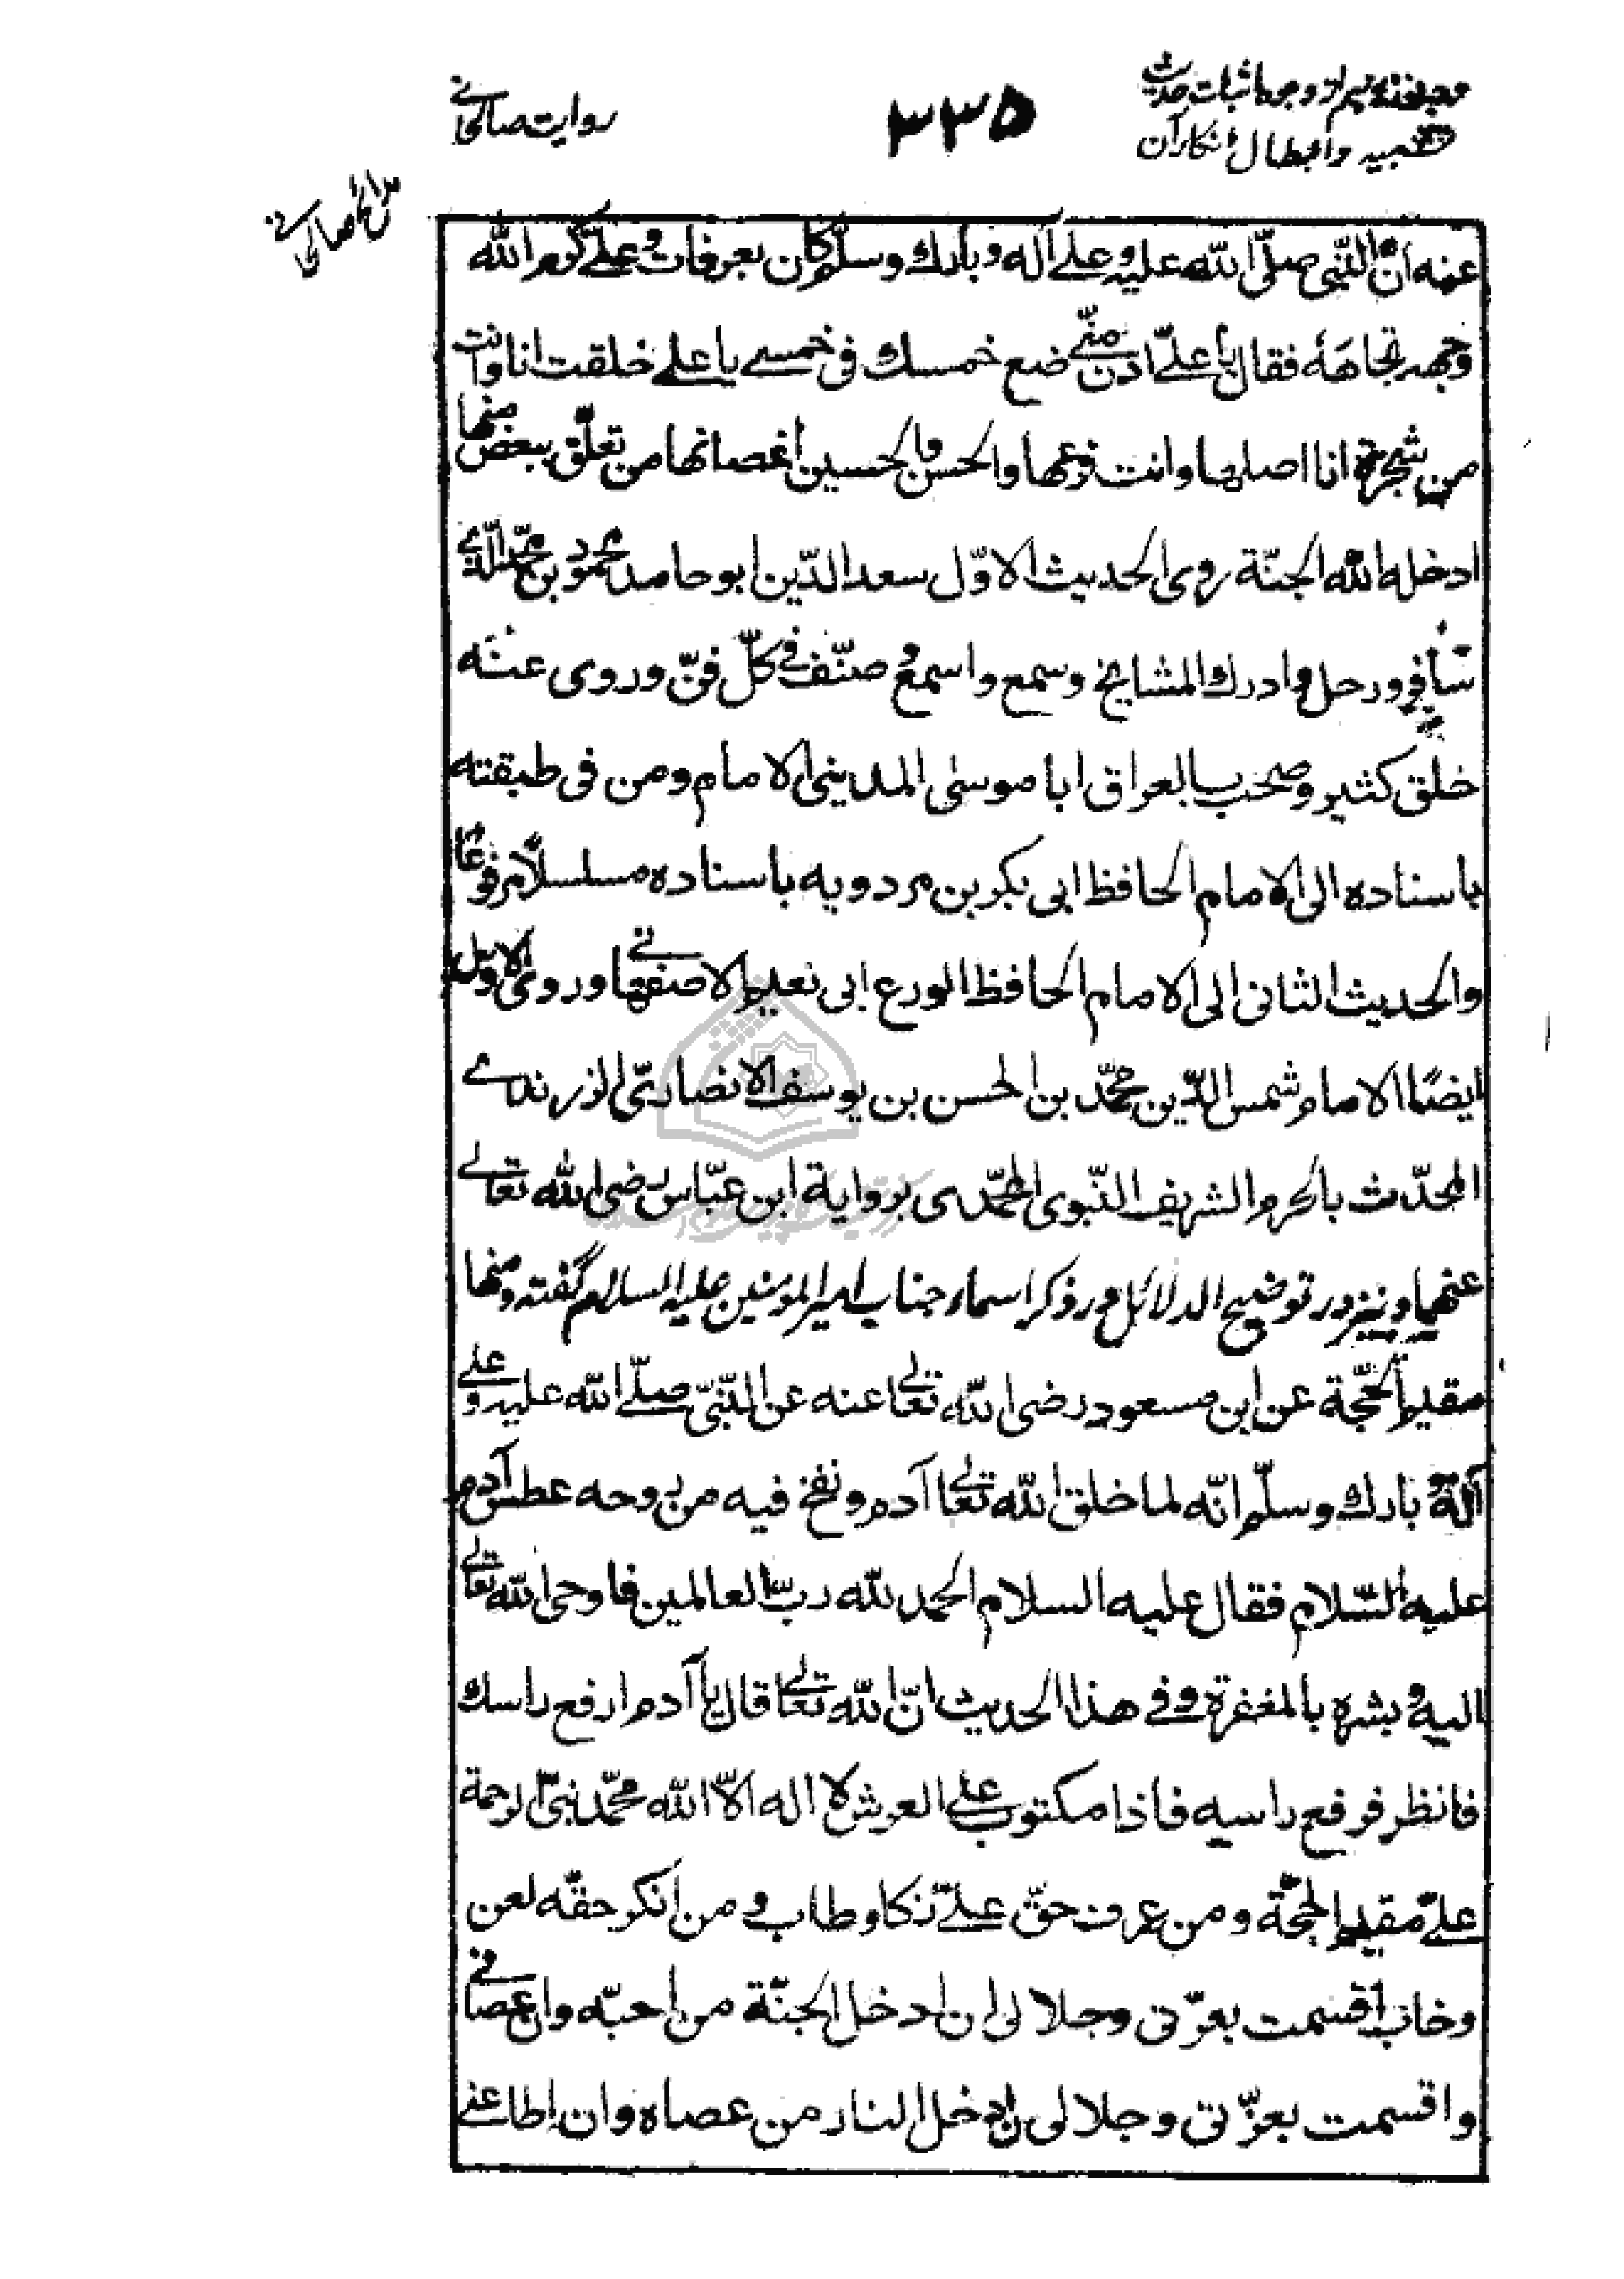 روایت صالحانی
۳۳۵
وجوه اثبات حدیث
تشبیه و ابطال انکار آن
عنه انّ النّبی صلّی الله علیه وعلی آله وبارک وسلّم کان بعرفات وعلیّ کرم الله
وجهه تجاهَهُ فقال یا علیّ ادن منّی ضع خمسک فی خمسی یا علی خلقت انا وانت
من شجرة انا اصلها وانت فرعها والحسن والحسین اغصانها من تعلّق ببعض منها
ادخله الله الجنّة روی الحدیث الاوّل سعد الدّین ابو حامد محمود بن محمّد الّذی
سافر ورحل وادرک المشایخ وسمع واسمع وصنّف فی کلّ فنّ وروی عنه
خلق کثیر وصحب بالعراق ابا موسٰی المدینی الامام ومن فی طبقته
باسناده الی الامام الحافظ ابی بکر بن مردویه باسناده مسلسلاً مرفوعًا
والحدیث الثانی الی الامام الحافظ الورع ابی نعیم الاصفهانی وروی الاول
ایضًا الامام شمس الدّین محمّد بن الحسن بن یوسف الانصاریّ الزرندی
المحدّث بالحرم الشریف النّبوی المحمّدی بروایة ابن عبّاس رضی الله تعالی
عنهما ونیز در توضیح الدلائل در ذکر اسماء جناب امیر المومنین علیه السلام گفته ومنها
مقیم الحجّة عن ابن مسعود رضی الله تعالی عنه عن النّبیّ صلّی الله علیه وعلی
آله وبارک وسلّم انّه لما خلق الله تعالی آدم ونفخ فیه من روحه عطس آدم
علیه السّلام فقال علیه السلام الحمد لله ربّ العالمین فاوحی الله تعالی
الیه وبشره بالمغفرة وفی هذا الحدیث انّ الله تعالی قال یا آدم ارفع راسک
فانظر فرفع راسه فاذا مکتوب علی العرش لا اله الاّ الله محمّد نبیّ الرحمة
علیّ مقیم الحجّة ومن عرف حقّ علیّ زکا وطاب ومن انکر حقّه لعن
وخاب اقسمت بعزّتی وجلالی ان ادخل الجنّة من احبّه وان عصانی
واقسمت بعزّتی وجلالی ان ادخل النار من عصاه وان اطاعنی